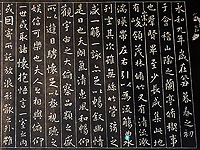 永和九年歲在癸丑暮春之初
于會稽山陰之蘭亭脩禊事
也羣賢畢至少長咸集此地
有峻領茂林脩竹又有清流激
湍暎帶左右引以為流觴曲水
列坐其次雖無絲竹管弦之
盛一觴一詠亦足以暢敘幽情
是日也天朗氣清惠風和暢仰
觀宇宙之大俯察品類之盛
所以遊目騁懷足以極視聽之
娛信可樂也夫人之相與俯仰
一世或取諸懷抱悟言一室之內
或因寄所託放浪形骸之外雖